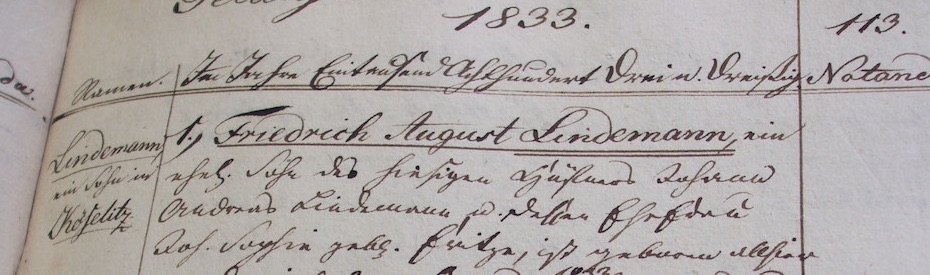 1833.
113.
Namen. Im Jahre Eintausend Achthundert Drei u. Dreißig. Notand
Lindemann,
ein Sohn in
Köselitz
1., Friedrich August Lindemann, ein
ehel. Sohn des hiesigen Johann
Andreas Lindemann, u. dessen Ehefrau
Joh. Sophie geb. Fritze, ist geboren allhier
1833